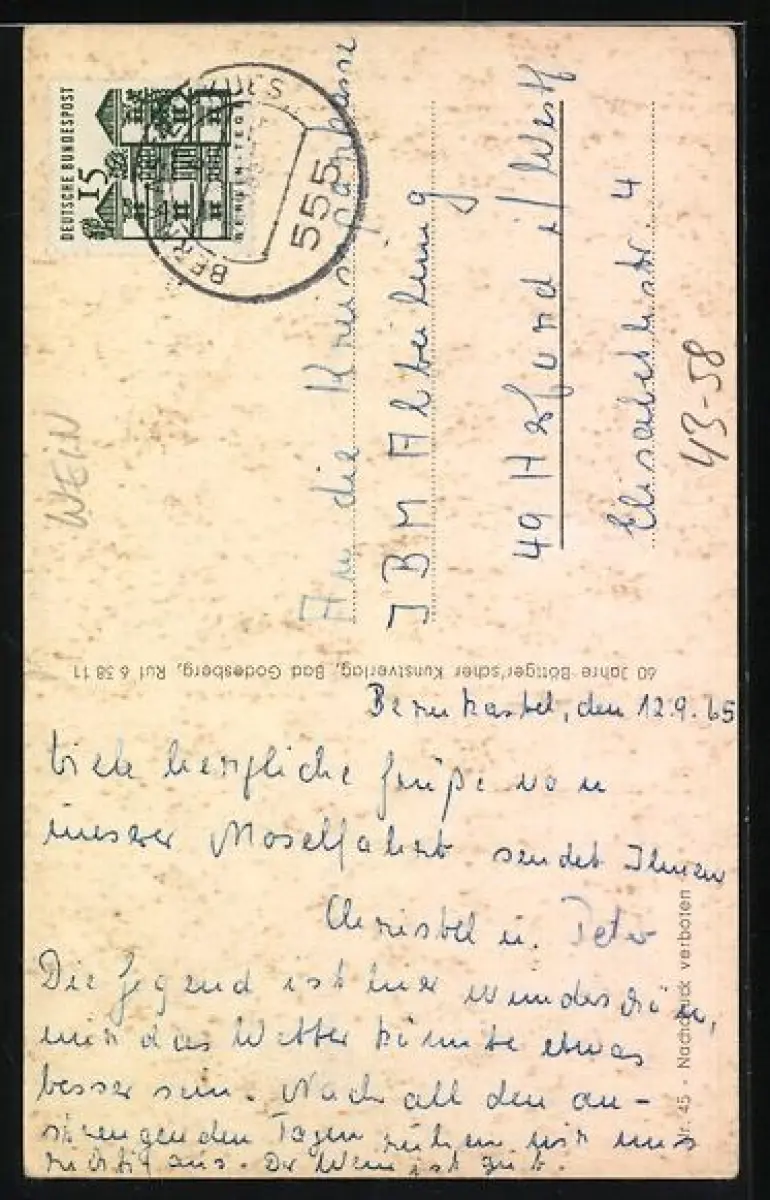 DEUTSCHE BUNDESPOST
15
555
An die Kreissparkasse
IBM Abteilung
49 Herford i/Westf
Elisabethstr. 4
43-58
WEIN
60 Jahre Böttger'scher Kunstverlag, Bad Godesberg, Ruf 6 38 11
Bernkastel, den 12.9.65
Viele herzliche Grüße von
unserer Moselfahrt sendet Ihnen
Christel u. Peter
Die Gegend ist hier wunderschön,
nur das Wetter könnte etwas
besser sein. Nach all den an-
strengenden Tagen ruhen wir uns
richtig aus. Der Wein ist gut.
Nr. 45 - Nachdruck verboten